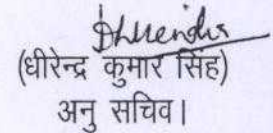 Dhirendra
(धीरेन्द्र कुमार सिंह)
अनु सचिव।